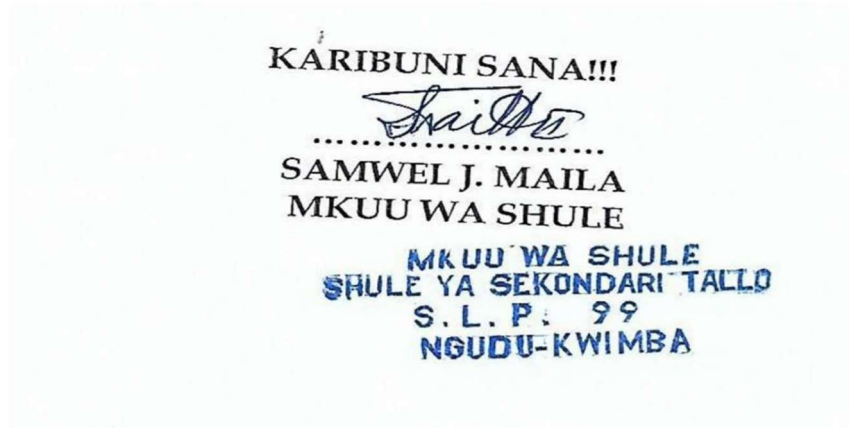 KARIBUNI SANA!!!
........................
SAMWEL J. MAILA
MKUU WA SHULE
MKUU WA SHULE
SHULE YA SEKONDARI TALLO
S.L.P. 99
NGUDU-KWIMBA